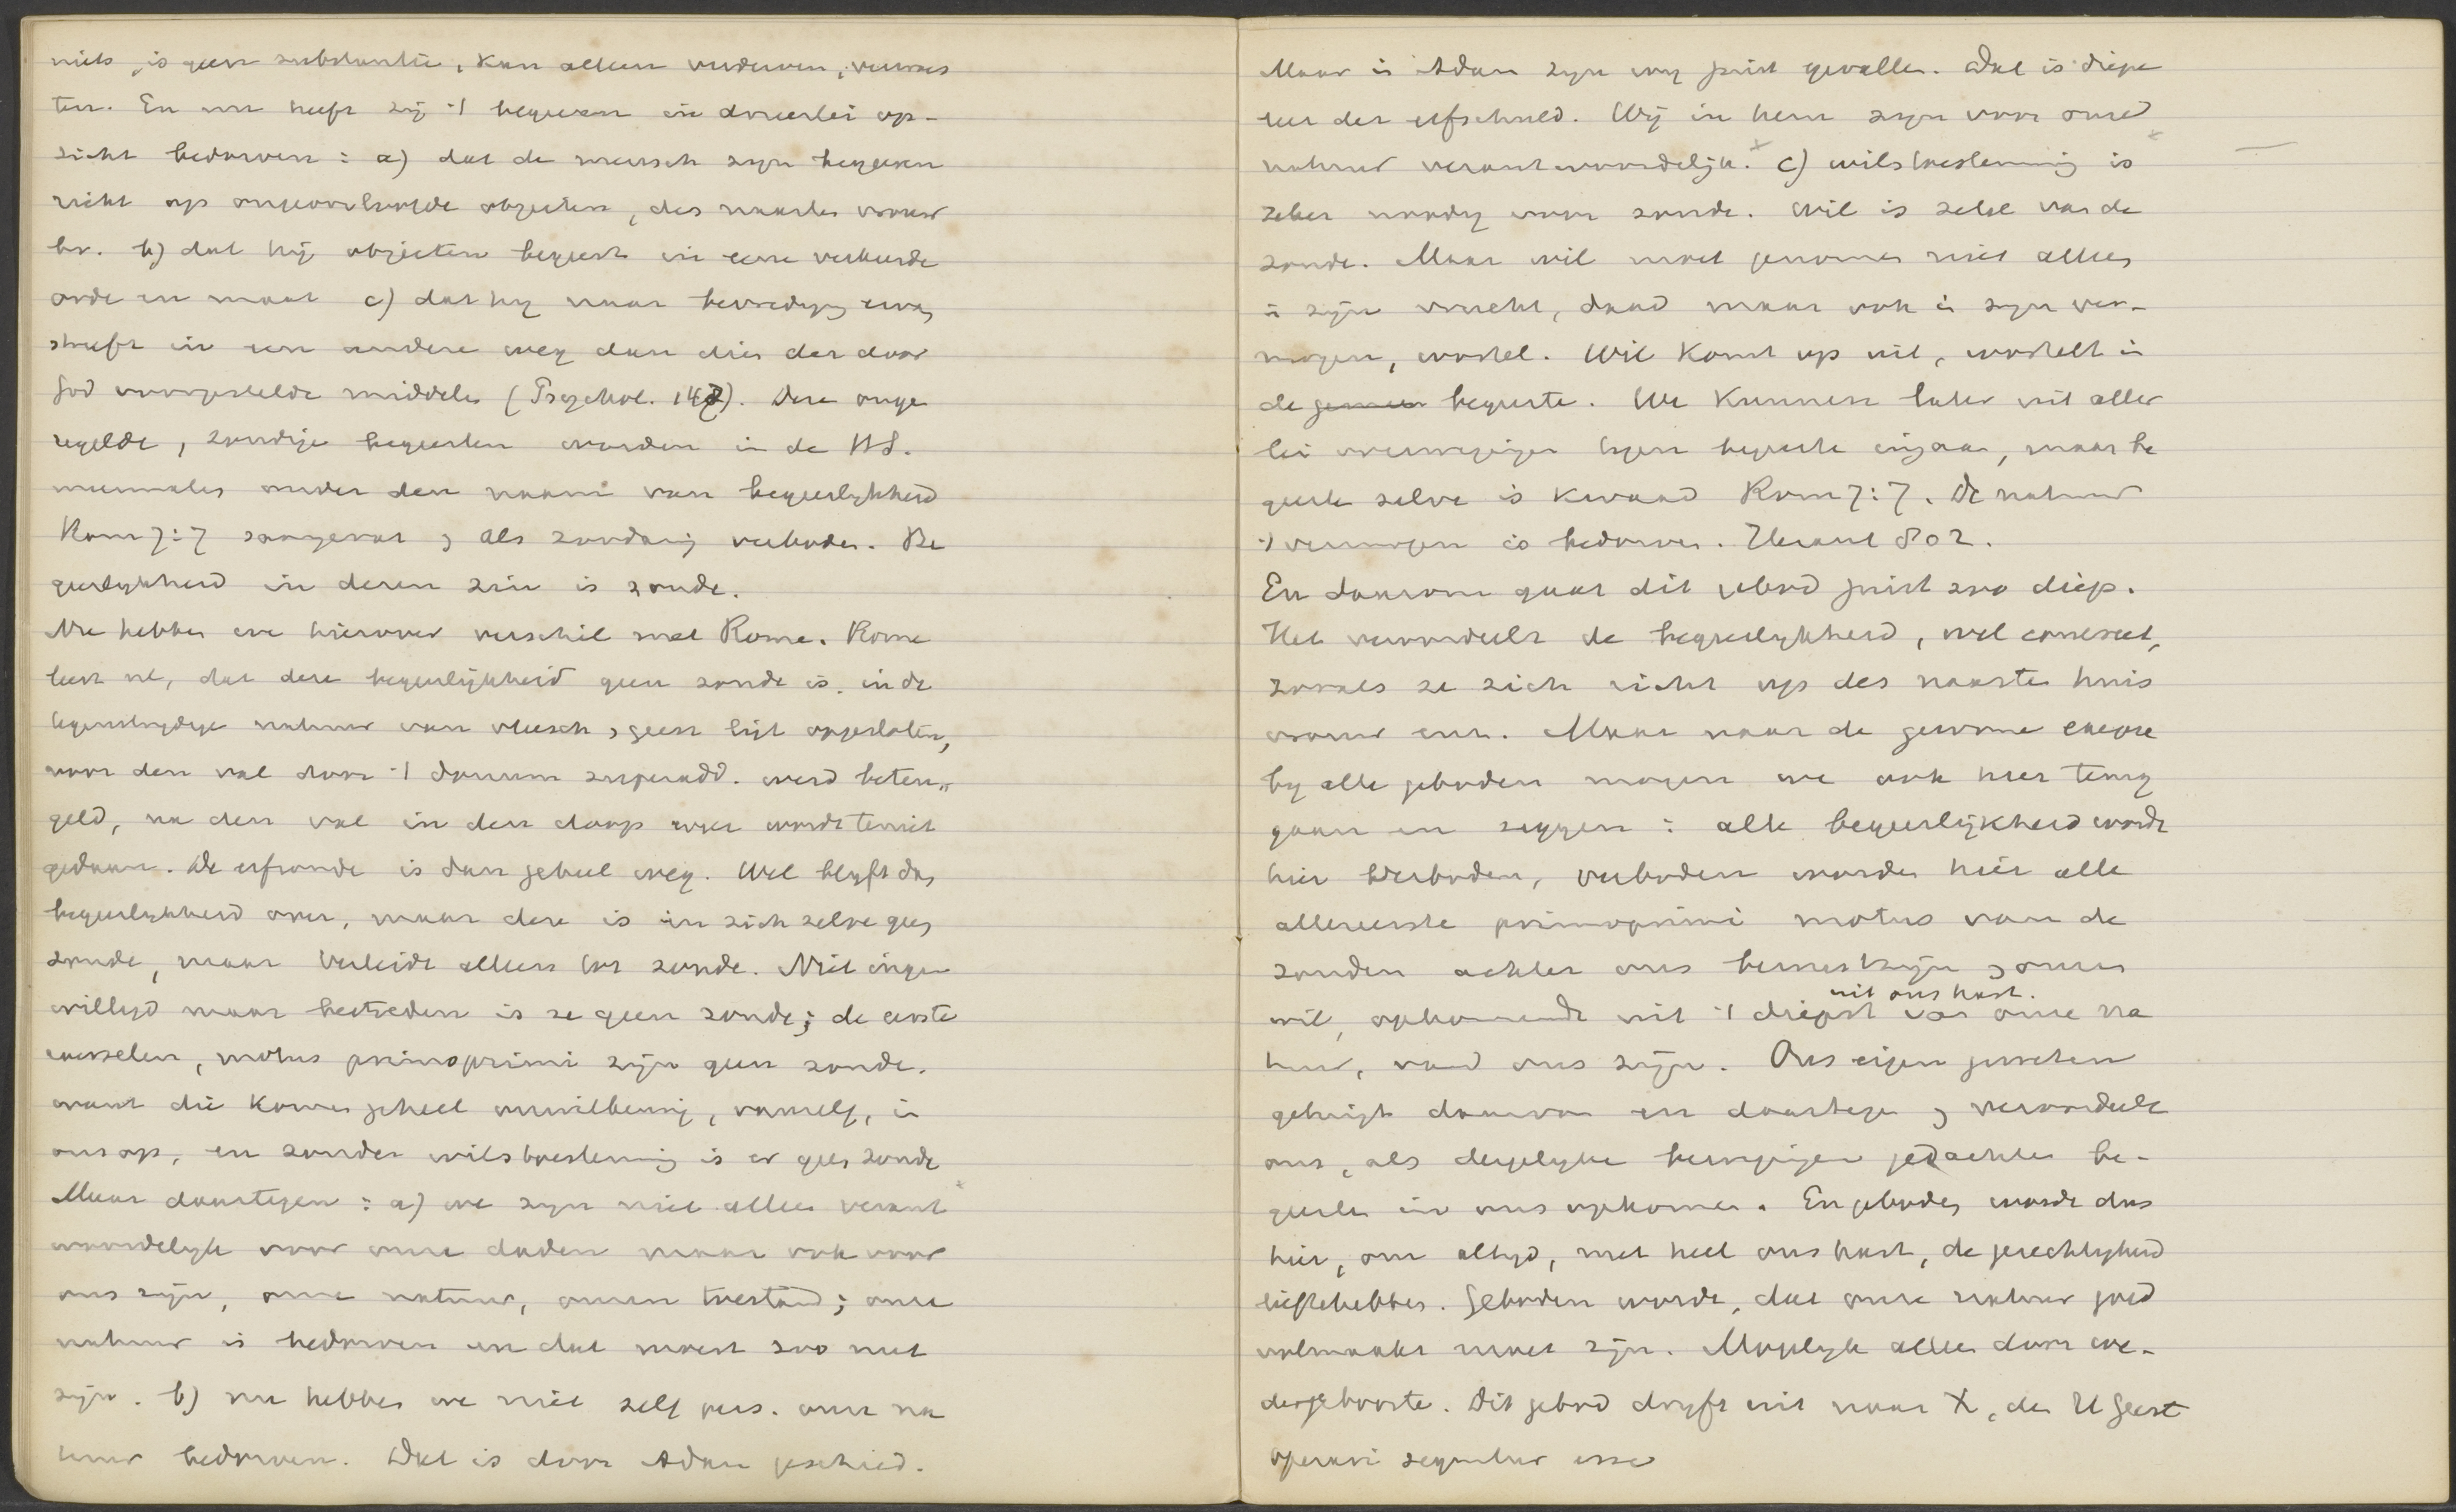 niets, is geen substantie, kan alleen verderven, verwoes
ten. En nu heeft zij 't begeeren in drieerlei op-
zicht bedorven: a) dat de mensch zijn begeeren
richt op ongeoorloofde objecten, des naasten vrouw
bv. b) dat hij objecten begeert in eene verkeerde
orde en maat c) dat hij naar bevrediging ervan
streeft in een andere weg dan dien der door
God voorgestelde middelen (Psychol. 147). Deze onge
regelde, zondige begeerten worden in de HS.
meermalen onder den naam van begeerlijkheid
Rom 7:7 saamgevat & als zoodanig verboden. Be
geerlijkheid in dezen zin is zonde.
Nu hebben we hierover verschil met Rome. Rome
leert nl, dat deze begeerlijkheid geen zonde is, in de
tegenstrijdige natuur van vleesch & geest ligt opgesloten,
voor den val door 't donum superadd. werd beteu„
geld, na den val in den doop weer wordt teniet
gedaan. De erfzonde is dan geheel weg. Wel blijft de
begeerlijkheid over, maar deze is in zich zelve geen
zonde, maar verleidt alleen tot zonde. Niet inge
willigd maar bestreden is ze geen zonde; de eerste
motus primoprimi zijn geen zonde.
want die komen geheel onwillekeurig, vanzelf, in
ons op, en zonder wilstoestemming is er geen zonde
Maar daartegen: a) we zijn niet alleen verant
woordelijk voor onze daden maar ook voor
ons zijn, onze natuur, onzen toestand; onze
natuur is bedorven en dat moest zoo niet
zijn. b) nu hebben we niet zelf pers. onze na
tuur bedorven. Dat is door Adam geschied.
Maar in Adam zijn wij juist gevallen. Dat is diepe
leer der erfschuld. Wij in hem zijn voor onze
natuur verantwoordelijk. c) wilstoestemming is
zeker noodig voor zonde. Wil is zetel van de
zonde. Maar wil moet genomen niet alleen
in zijn vrucht, daad maar ook in zijn ver-
mogen, wortel. Wil komt op uit, wortelt in
de begeerte. We kunnen later uit aller
lei overwegingen tegen begeerte ingaan, maar be
geerte zelve is kwaad Rom 7:7. De natuur
't vermogen is bedorven. Heraut 802.
En daarom gaat dit gebod juist zoo diep.
Het veroordeelt de begeerlijkheid, wel concreet,
zooals ze zich richt op des naasten huis
vrouw enz. Maar naar de gewone exegese
bij alle geboden mogen we ook hier terug
gaan en zeggen: alle begeerlijkheid wordt
hier verboden, verboden worden hier alle
allereerste primoprimi motus van de
zonden achter ons bewustzijn & onzen
wil, opkomende uit 't diepst van onze na
uit ons hart.
tuur, van ons zijn. Ons eigen geweten
getuigt daarvan en daartegen & veroordeelt
ons, als dergelijke bewegingen gedachten be-
geerten in ons opkomen. En geboden wordt dus
hier, om altijd, met heel ons hart, de gerechtigheid
lieftehebben. Geboden wordt, dat onze natuur goed
volmaakt moet zijn. Mogelijk alleen door we-
dergeboorte. Dit gebod drijft uit naar X, den H Geest
operari sequitur esse